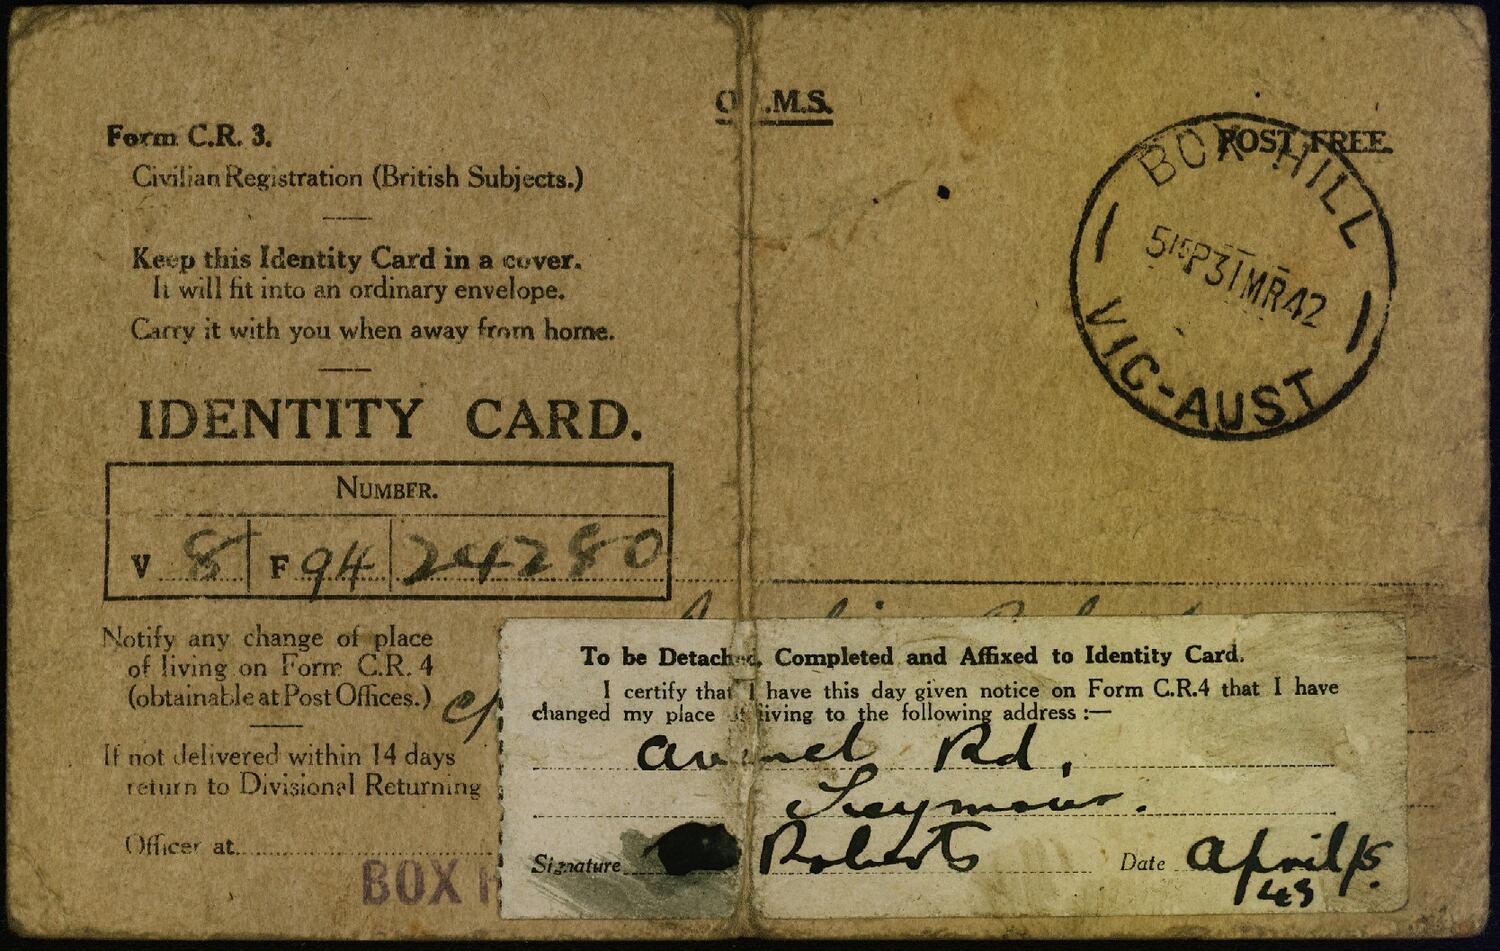 O .M.S.
POST FREE.
Form C.R. 3.
Civilian Registration (British Subjects.)
Keep this Identity Card in a cover.
It will fit into an ordinary envelope.
Carry it with you when away from home.
IDENTITY CARD.
NUMBER.
V 8 F 94 24280
BOX HILL
5 15P 31 MR 42
VIC-AUST
Notify any change of place
of living on Form C.R. 4
(obtainable at Post Offices.)
c/
If not delivered within 14 days
return to Divisional Returning
Officer at
BOX H
To be Detached, Completed and Affixed to Identity Card.
I certify that I have this day given notice on Form C.R.4 that I have
changed my place of living to the following address :—
Avenel Rd,
Seymour.
Signature Roberts Date April/5
43